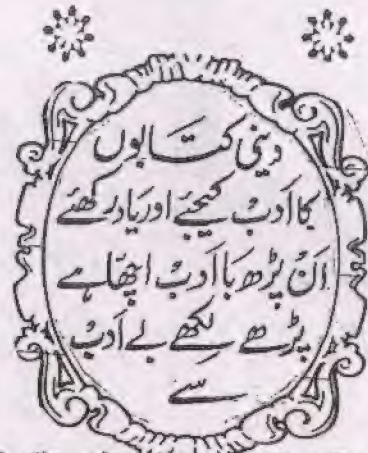 دینی کتابوں
کا ادبْ کیجئے اور یاد رکھئے
اَنْ پڑھ بَا اَدبْ اچھّا ہے
پڑھے لِکھے بے اَدبْ
سے